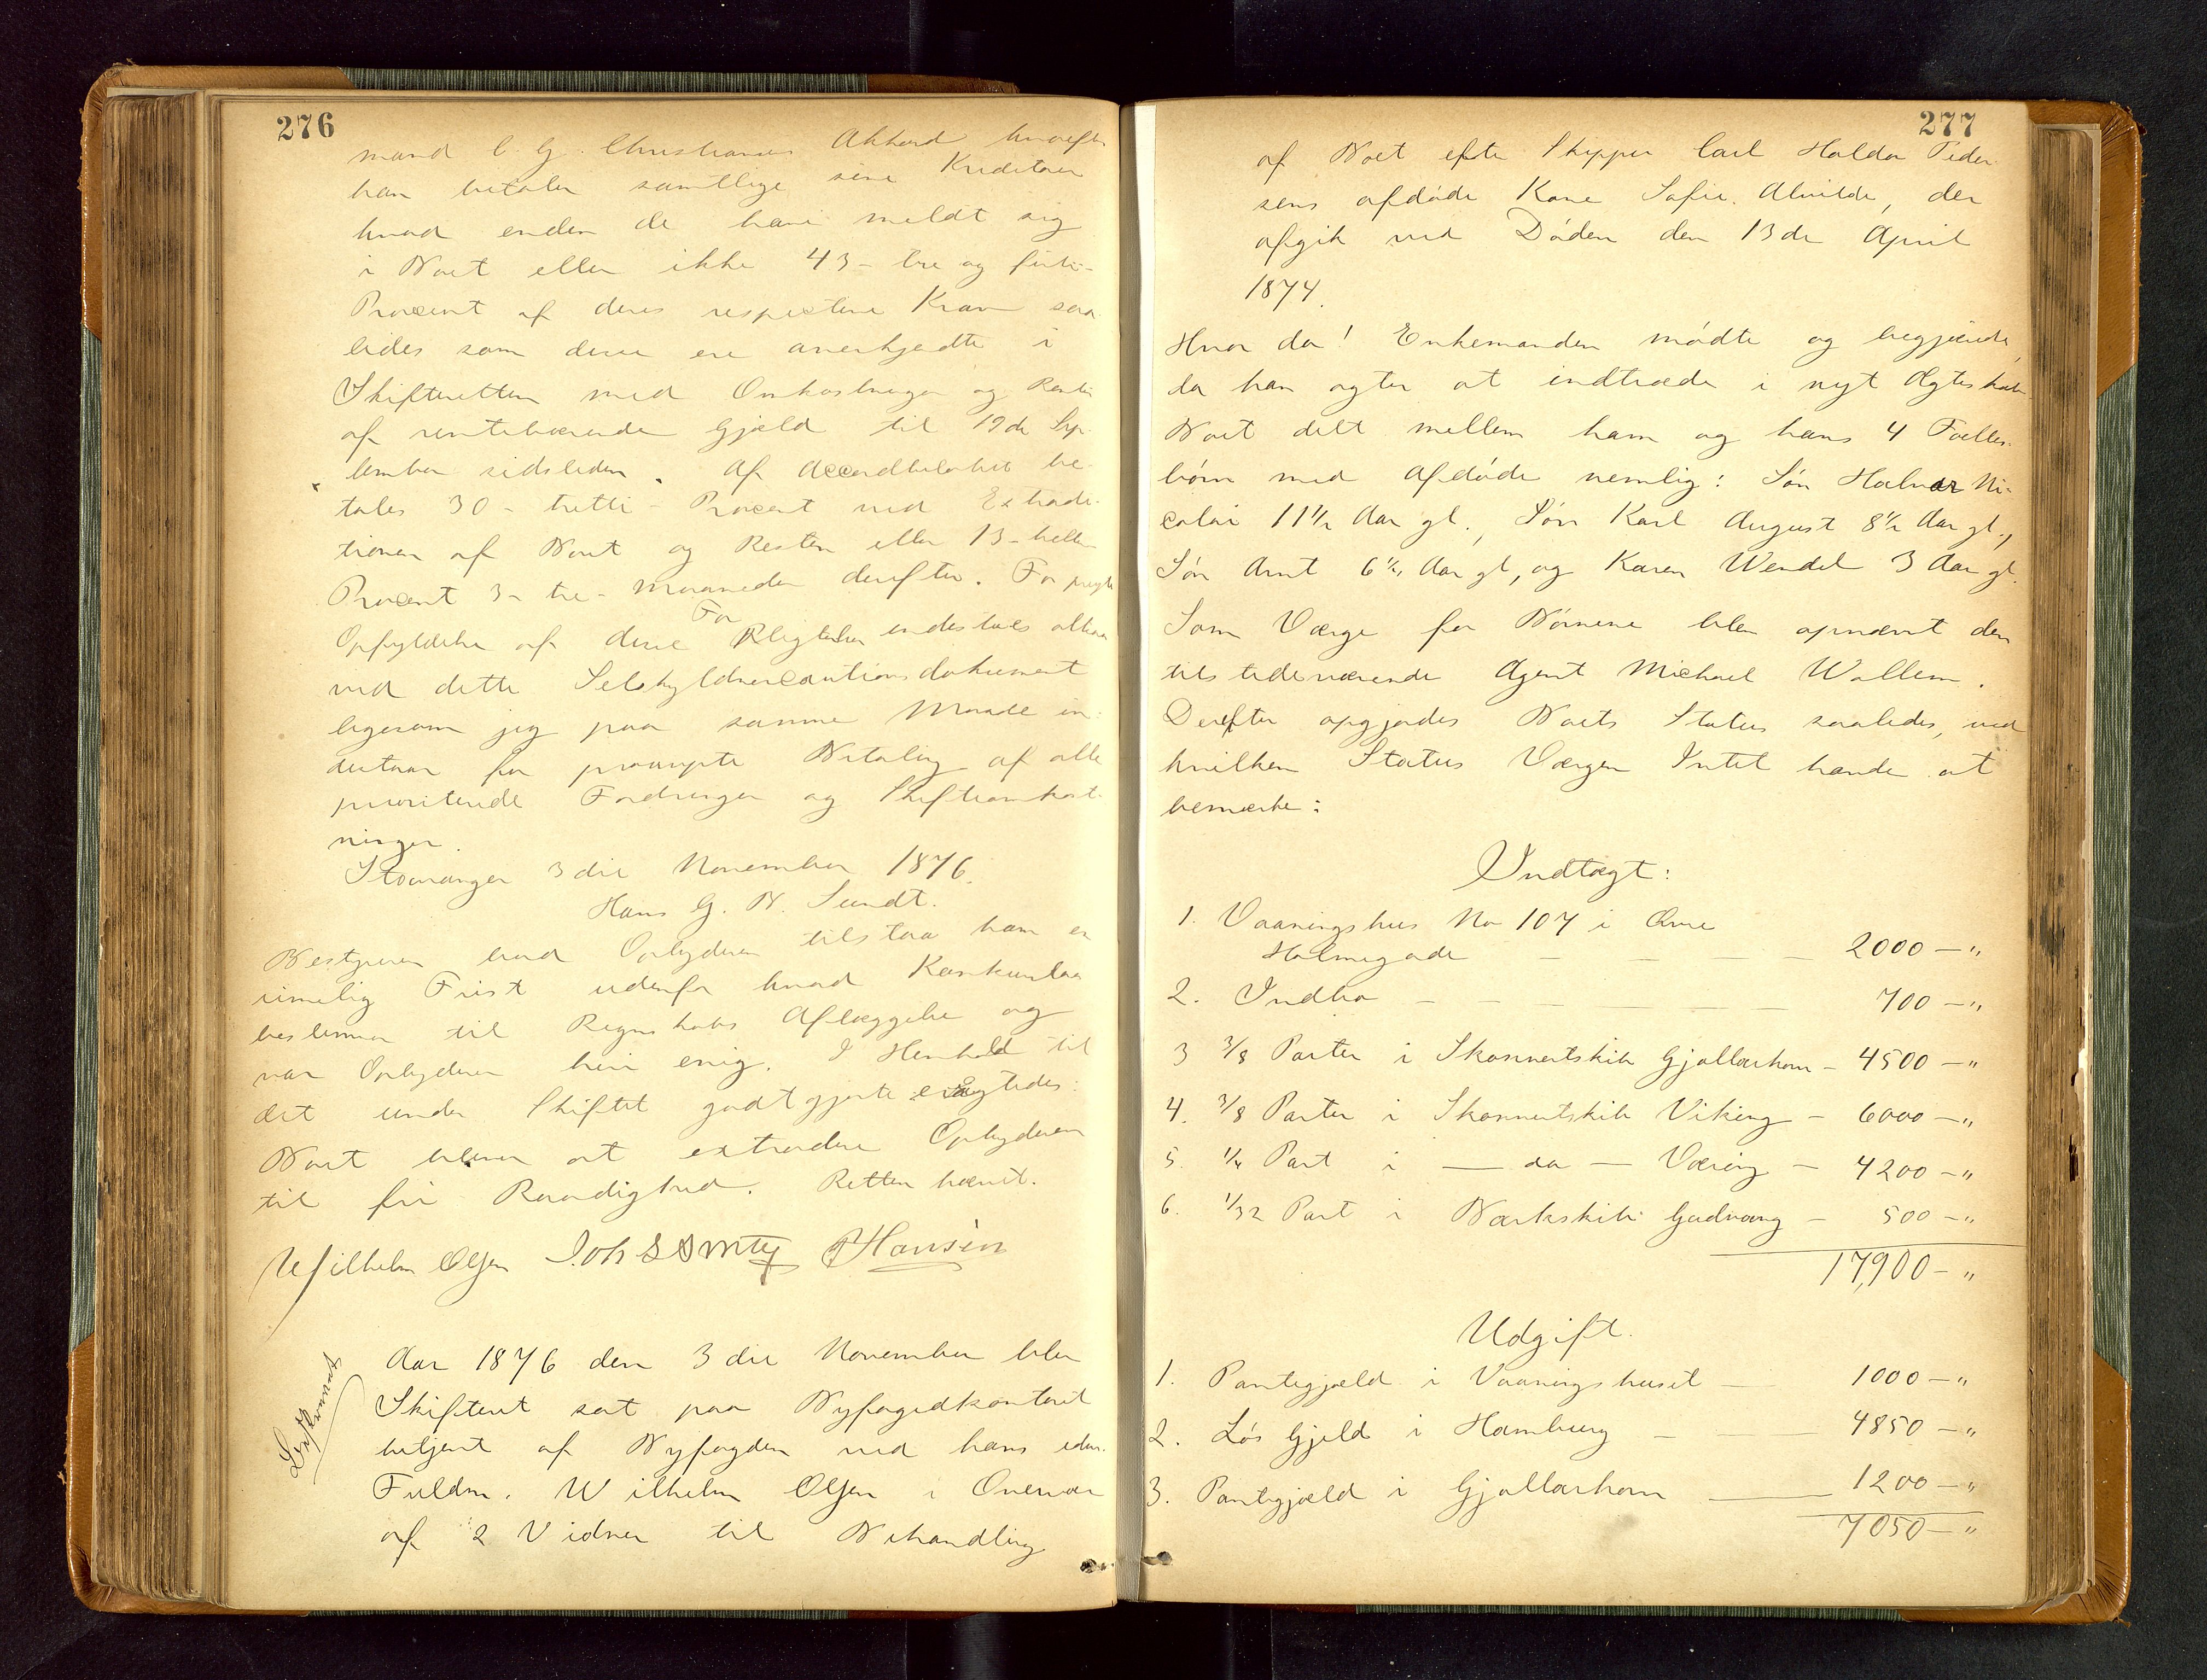 276
mand C. G. Christiansens Akkord hvorefter
han betaler samtlige sine Kreditorer
hvad enten de have meldt sig
i Boet eller ikke 43 - tre og firti -
Procent af deres respective Krav saa
ledes som disse ere anerkjendte i
Skifteretten med Omkostninger og Rente
af rentebærende Gjæld til 19de Sep-
tember sidstleden. Af Accordbeløbet be-
tales 30 - tretti - Procent ved Extradi-
tionen af Boet og Resten eller 13 - tretten
Procent 3 - tre - Maaneder derefter. For
Opfyldelse af disse Pligter indestaaes altsaa
ved dette Selvskyldnercautionsdokument
ligesom jeg paa samme Maade in-
destaar for prompte Betaling af alle
prioriterede Fordringer og Skifteomkost-
ninger.
Stavanger 3die November 1876.
Hans G. B. Sundt.
Bestyreren bad Opbyderen tilstaa ham en
rimelig Frist udenfor hvad Konkursloven
bestemmer til Regnskabs Aflæggelse og
var Opbyderen heri enig. I Henhold til
det under Skiftet godtgjorte eragtedes:
Boet bliver at extradere Opbyderen
til fri Raadighed. Retten hævet.
Wilhelm Olsen Joh S Smith P Hansen
Aar 1876 den 3die November blev
Skifteret sat paa Byfogedkontoret
betjent af Byfogden ved hans edsv.
Fuldm. Wilhelm Olsen i Overvær
af 2 Vidner til Behandling
277
af Boet efter Skipper Carl Haldor Peder-
sens afdøde Kone Sofie Alvilde, der
afgik ved Døden den 13de April
1874.
Hvor da! Enkemanden mødte og begjærede,
da han agter at indtræde i nyt Ægteskab
Boet delt mellem ham og hans 4 Fælles-
børn med Afdøde nemlig: Søn Halvor Ni-
colai 11½ Aar gl., Søn Karl August 8½ Aar gl.,
Søn Arnt 6½ Aar gl, og Karen Wendel 3 Aar gl.
Som Værge for Børnene blev opnævnt den
tilstedeværende Agent Michael Wallem.
Derefter opgjordes Boets Status saaledes, ved
hvilken Status Værgen Intet havde at
bemærke:
Indtægt:
1. Vaaningshus No 107 i Øvre
Holmegade — — — — 2000 — "
2. Indbo — — — — — 700 — "
3 3/8 Parter i Skonnertskib Gjallarhorn — 4500 — "
4. 3/8 Parter i Skonnertskib Viking — 6000 — "
5. 1/4 Part i — do — Væring — 4200 — "
6. 1/32 Part i Barkskib Gudvang — 500 — "
17,900 — "
Udgift.
1. Pantegjæld i Vaaningshuset — 1000 — "
2. Løs Gjeld i Hamburg — — 4850 — "
3. Pantegjæld i Gjallarhorn — 1200 — "
7050 — "